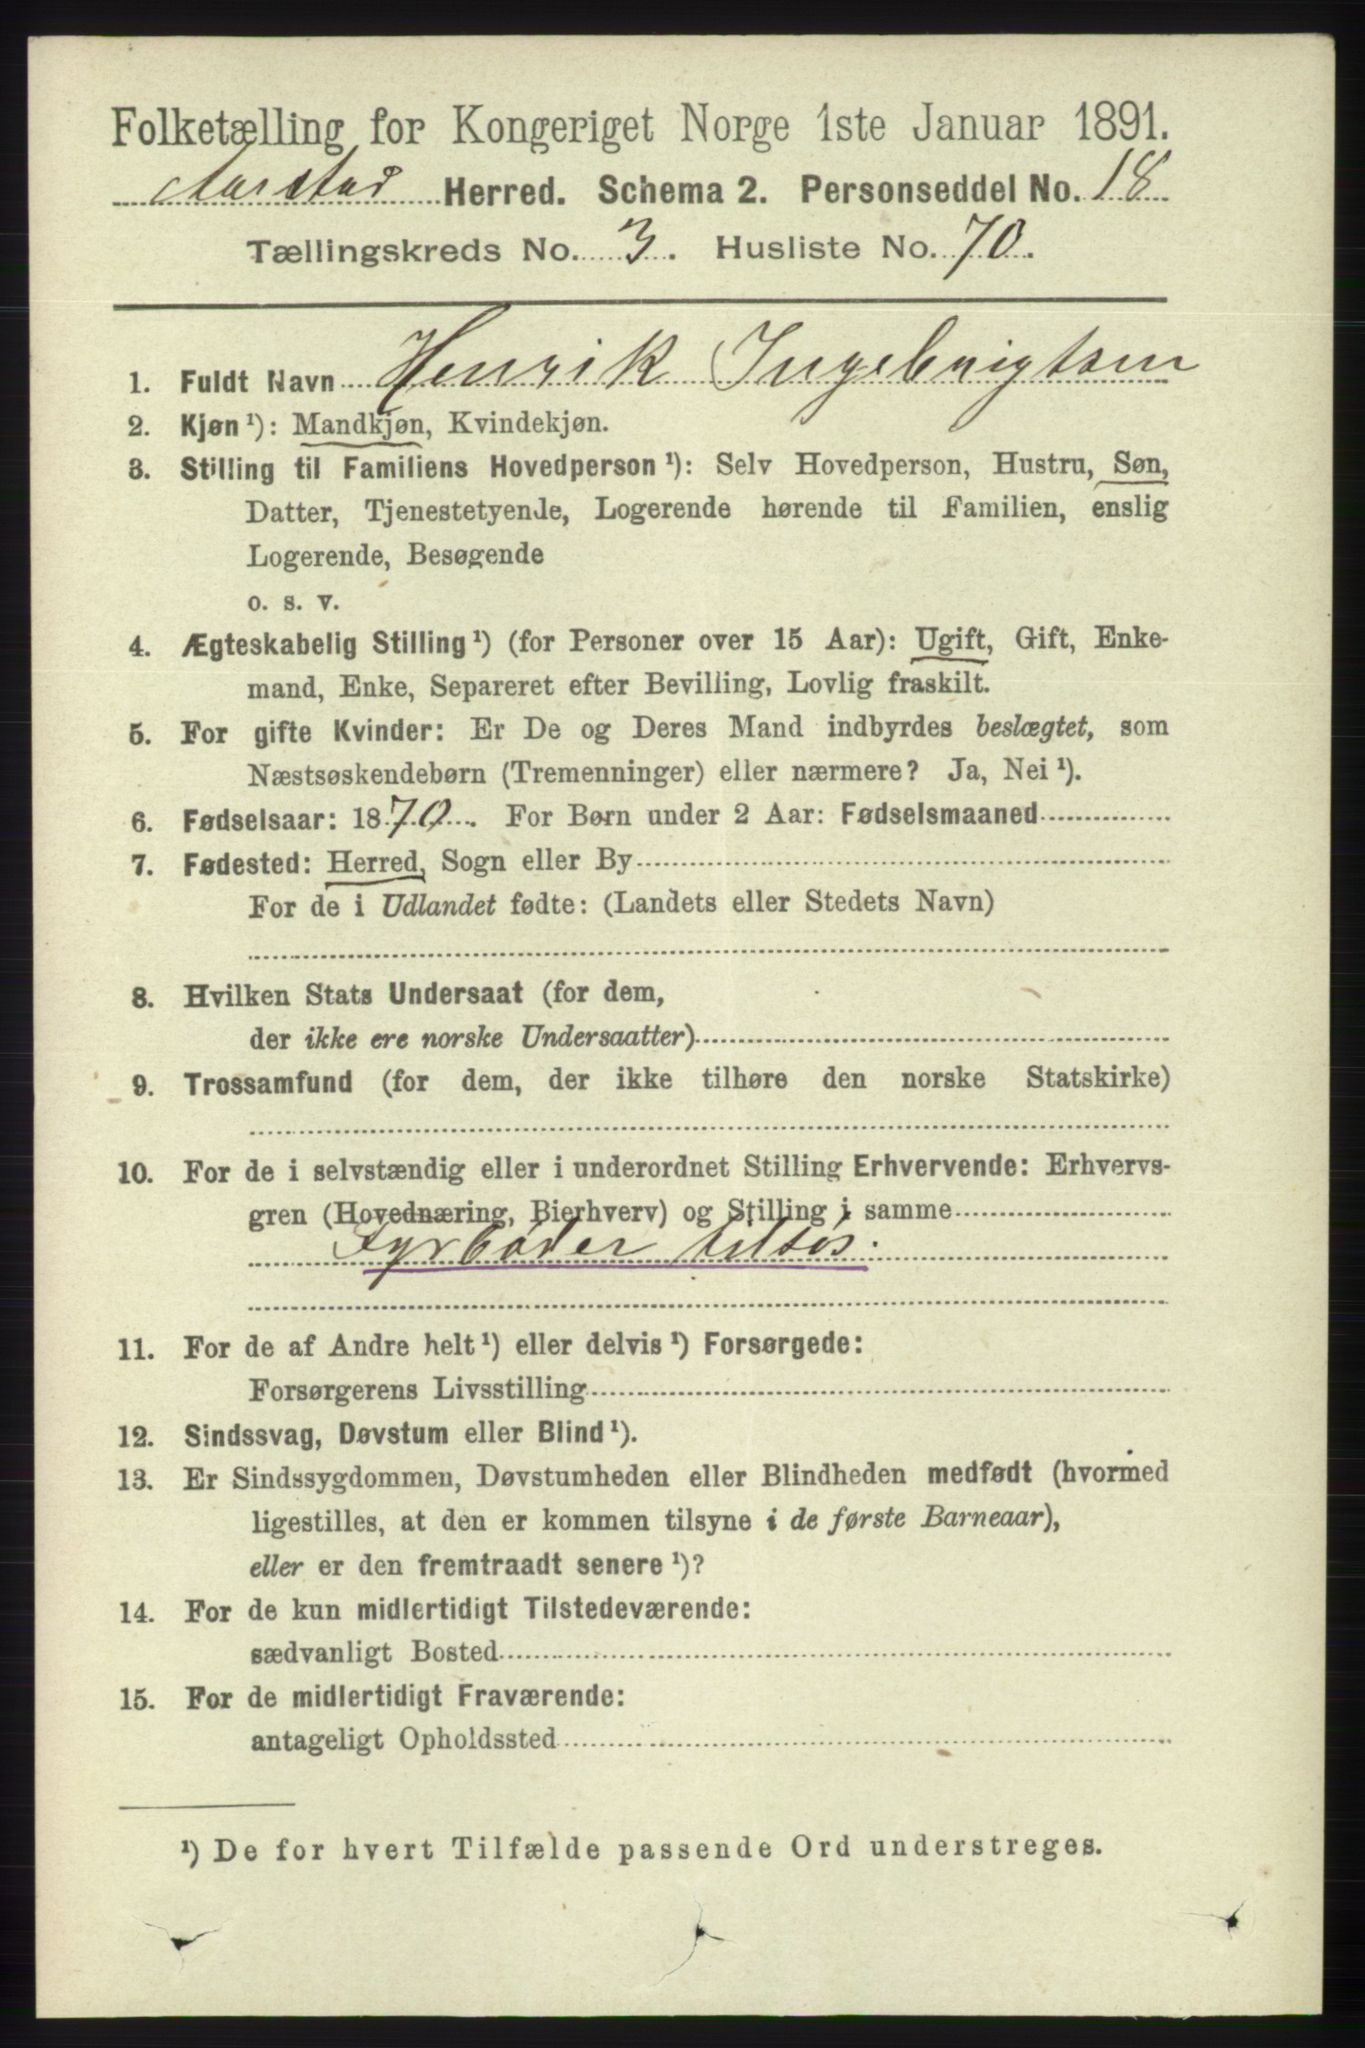 Folketælling for Kongeriget Norge 1ste Januar 1891.
Aarstad Herred. Schema 2. Personseddel No. 18
Tællingskreds No. 3. Husliste No. 70.
1. Fuldt Navn Henrik Ingebrigtsen
2. Kjøn ¹): Mandkjøn, Kvindekjøn.
3. Stilling til Familiens Hovedperson ¹): Selv Hovedperson, Hustru, Søn,
Datter, Tjenestetyende, Logerende hørende til Familien, enslig
Logerende, Besøgende
o. s. v.
4. Ægteskabelig Stilling ¹) (for Personer over 15 Aar): Ugift, Gift, Enke-
mand, Enke, Separeret efter Bevilling, Lovlig fraskilt.
5. For gifte Kvinder: Er De og Deres Mand indbyrdes beslægtet, som
Næstsøskendebørn (Tremenninger) eller nærmere? Ja, Nei ¹).
6. Fødselsaar: 1870. For Børn under 2 Aar: Fødselsmaaned
7. Fødested: Herred, Sogn eller By
For de i Udlandet fødte: (Landets eller Stedets Navn)
8. Hvilken Stats Undersaat (for dem,
der ikke ere norske Undersaatter)
9. Trossamfund (for dem, der ikke tilhøre den norske Statskirke)
10. For de i selvstændig eller i underordnet Stilling Erhvervende: Erhvervs-
gren (Hovednæring, Bierhverv) og Stilling i samme
Fyrbøder tilsøs.
11. For de af Andre helt ¹) eller delvis ¹) Forsørgede:
Forsørgerens Livsstilling
12. Sindssvag, Døvstum eller Blind ¹).
13. Er Sindssygdommen, Døvstumheden eller Blindheden medfødt (hvormed
ligestilles, at den er kommen tilsyne i de første Barneaar),
eller er den fremtraadt senere ¹)?
14. For de kun midlertidigt Tilstedeværende:
sædvanligt Bosted
15. For de midlertidigt Fraværende:
antageligt Opholdssted
¹) De for hvert Tilfælde passende Ord understreges.